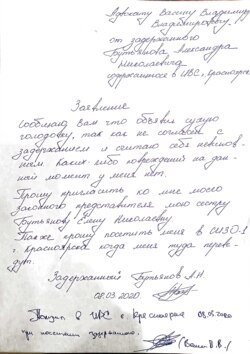 Адвокату Васину Владимиру
Владимировичу
от задержанного
Бутьянова Александра
Николаевича
содержащегося в ИВС г. Красноярск
Заявление
Сообщаю Вам что объявил сухую
голодовку, так как не согласен с
задержанием и считаю себя невинов-
ным каких либо повреждений на дан-
ный момент у меня нет.
Прошу пригласить ко мне моего
законного представителя мою сестру
Бутьянову Елену Николаевну.
Также прошу посетить меня в СИЗО-1
г. Красноярска когда меня туда перев-
дут.
Задержанный Бутьянов А.Н
08.03.2020
в ИВС г. Красноярска 08.03.2020
при посещении задержанного.
(Васин В.В.)